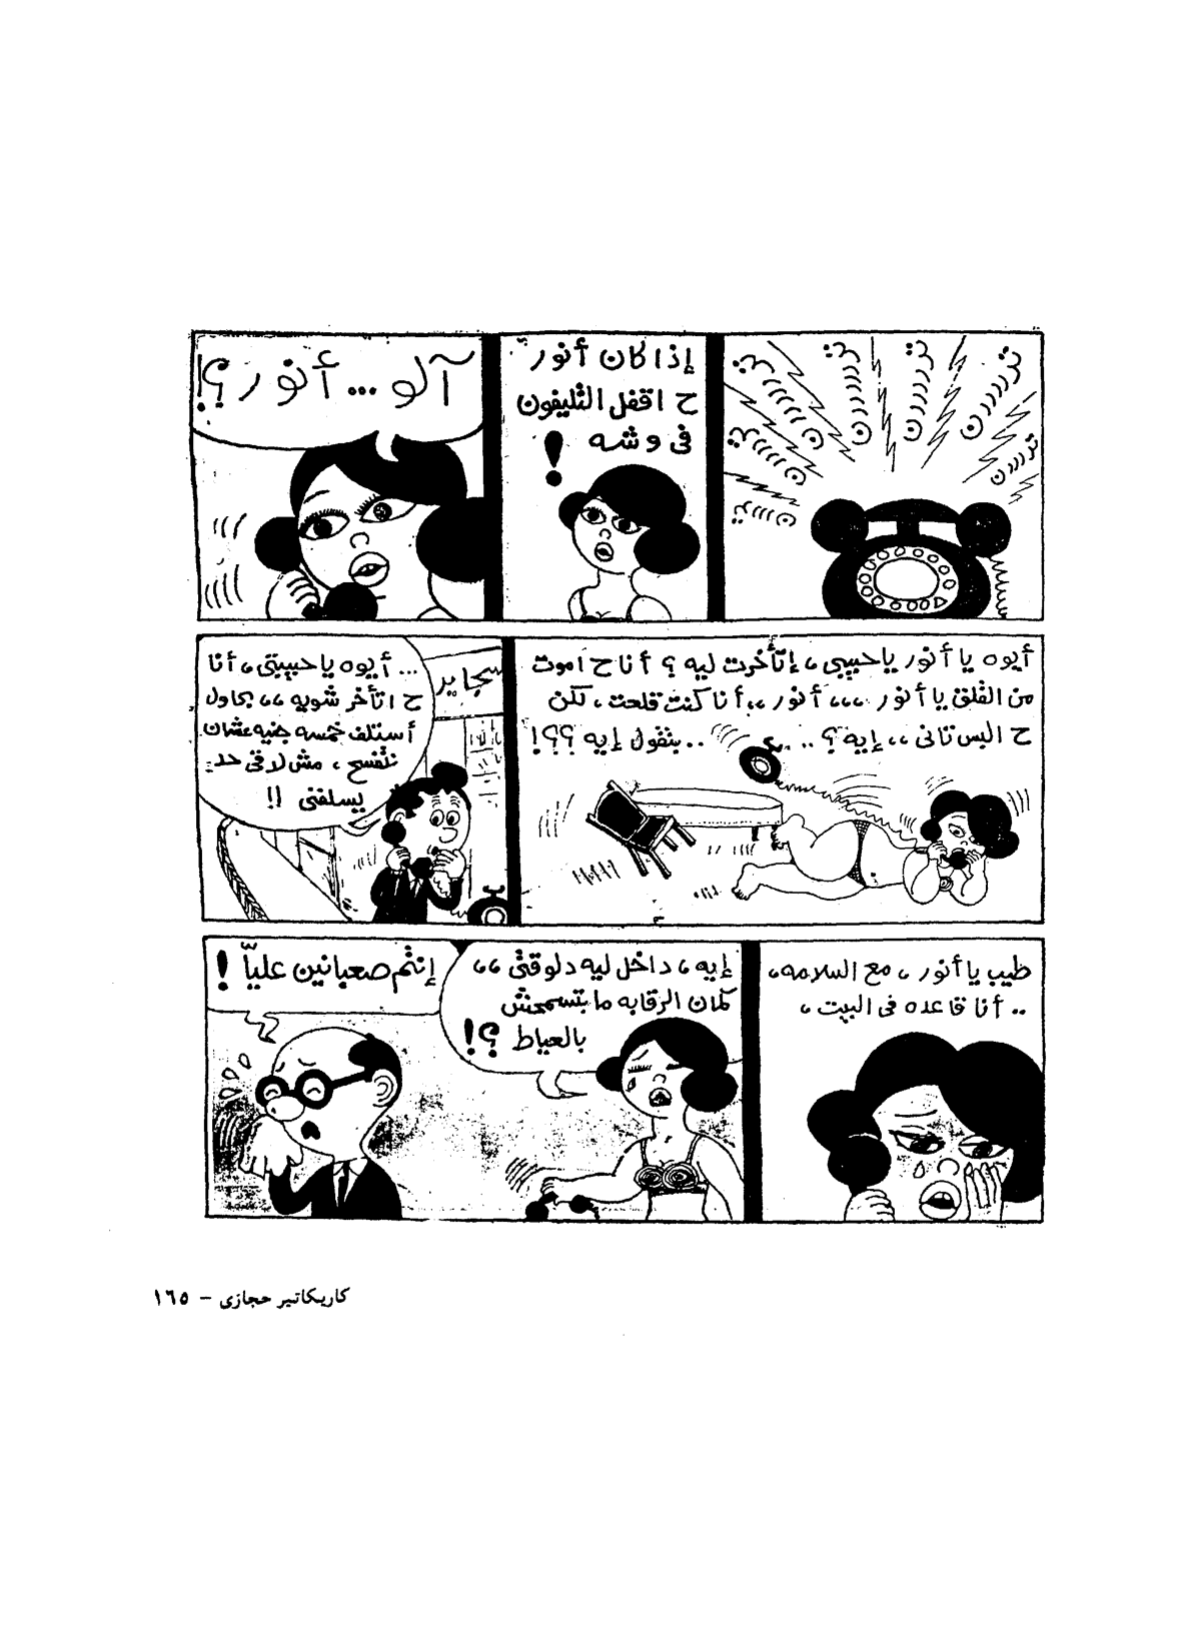 ترررررن
ترررررن
ترررررن
ترررررن
ترررررن
ترررررن
ترررررن
إذا كان أنور
ح اقفل التليفون
فى وشه
!
آلو ... أنور ؟!
أيوه يا أنور يا حبيبى ، إتأخرت ليه ؟ أنا ح اموت
من القلق يا أنور ،،،، أنور ،، أنا كنت قلعت ، لكن
ح البس تانى ،، إيه ؟ .. .. بتقول إيه ؟؟؟!
... أيوه يا حبيبتى ، أنا
ح اتأخر شويه ،، بحاول
أستلف خمسه جنيه عشان
نتفسح ، مش لاقى حد
يسلفنى !!
سجاير
طيب يا أنور ، مع السلامه ،
.. أنا قاعده فى البيت ،
إيه ، داخل ليه دلوقتى ،،
كمان الرقابه ما بتسمحش
بالعياط ؟!
إنتم صعبانين عليّا !
كاريكاتير حجازى – ١٦٥